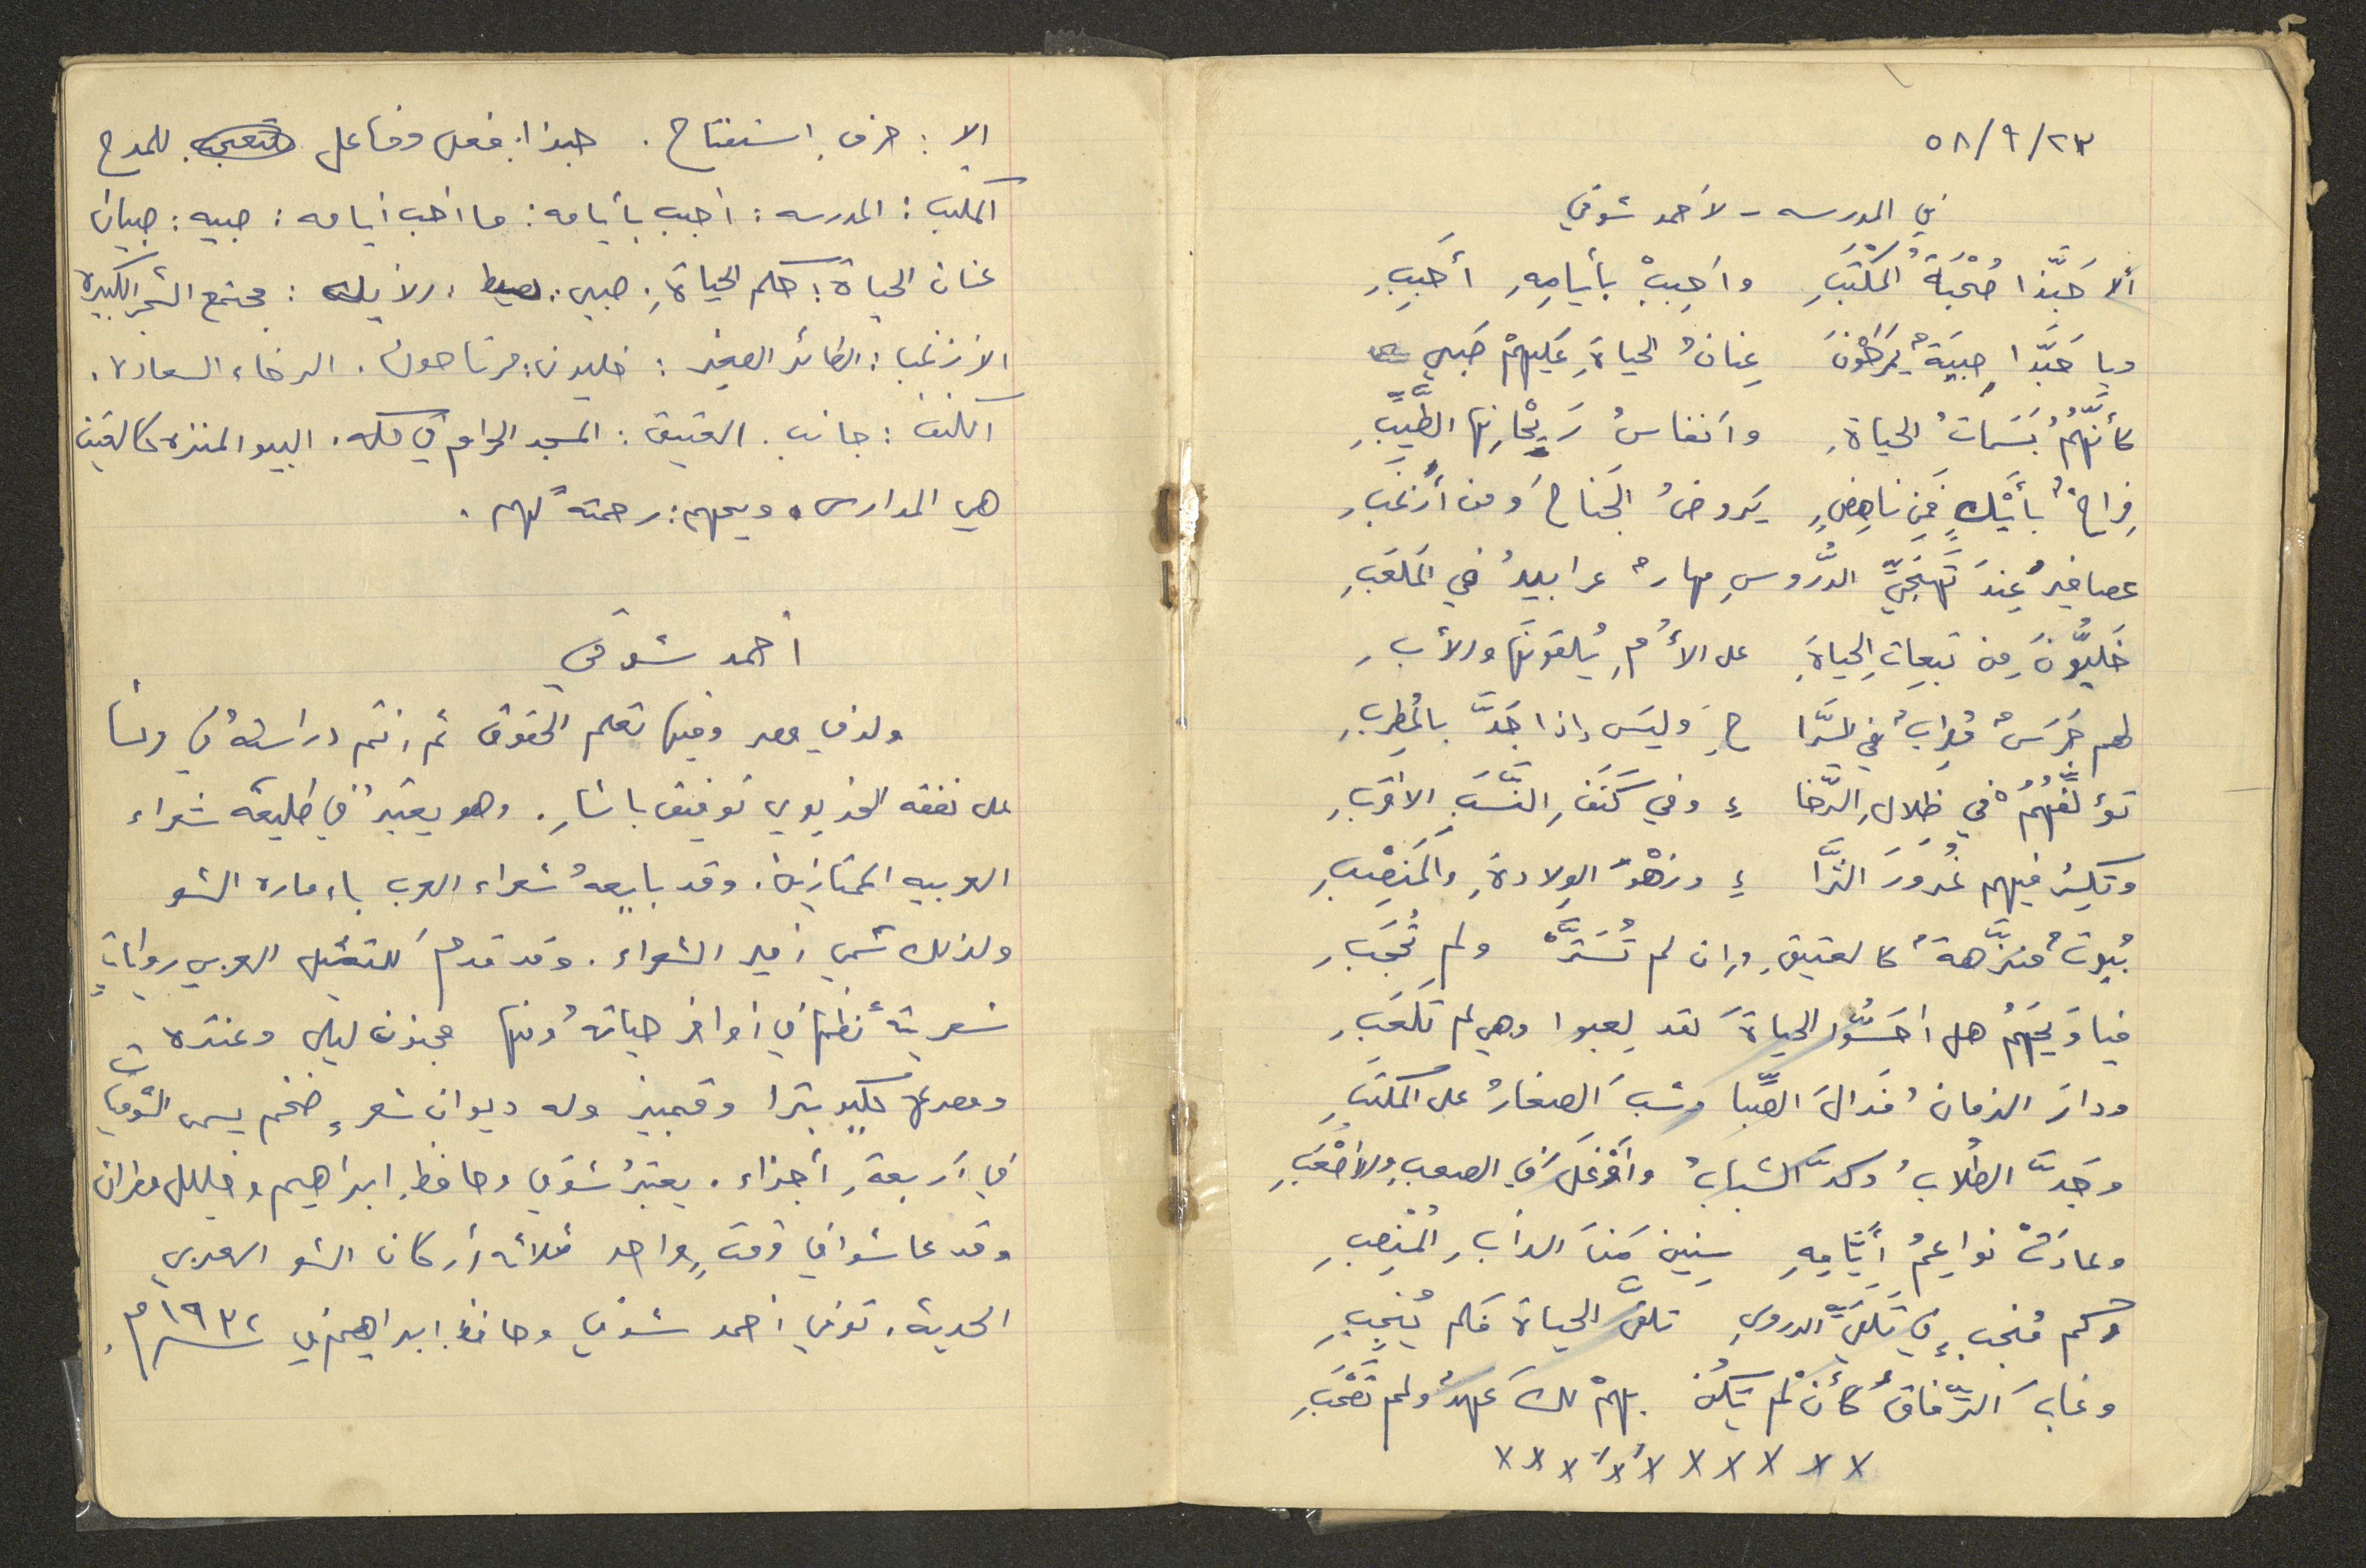 ٥٨/٩/٢٣
في المدرسه - لأحمد شوقي
ألا حَبَّذا صُحْبَةُ المَكْتَبِ وأَحِببْ بأيامِهِ أحَببِ
ويا حَبَّذا صِبيَةٌ يَمرَحُونَ عِنانُ الحياةِ عَلَيهِمْ صَبي
كأنّهُمُ بَسَماتُ الحياةِ وأنفاسُ رَيْحانِها الطَّيِّبِ
فِراخٌ بأيْكٍ فَمِن ناهِضٍ يَروضُ الجَناحَ ومن أزغَبِ
عصافيرُ عِندَ تَهَجّي الدُّروسِ مهارٌ عرابيدُ في المَلعَبِ
خَليّونَ مِن تَبِعاتِ الحياةِ على الأُمِ يُلقونَها والأبِ
لهم جَرَسٌ مُطرِبٌ في السَّرا حِ وليسَ إذا جَدَّ بالمُطرِبِ
تؤلِّفُهُمُ في ظِلالِ الرَّخا ءِ وفي كَنَفِ النَّسَبِ الاقرَبِ
وتكسِرُ فيهم غُرورَ الثَّرا ءِ وزَهْوَ الوِلادةِ والمَنصِبِ
بُيوتٌ منزَّهةٌ كالعتيقِ وإن لم تُسَتَّرْ ولم تُحجَبِ
فيا وَيحَهُمُ هل أحَسّوا الحياةَ لقد لعِبوا وهي لم تَلعَبِ
ودارَ الزمانُ فدالَ الصِّبا وشبَ الصغارُ على المكتبِ
وجَدَّ الطُلابُ وكدَّ الشبابُ وأوْغلَ في الصعبِ والأصْعَبِ
وعادَتْ نواعِمُ أيّامِهِ سِنينَ مَنَ الدأبِ المُنصِبِ
وكم مُنجبٍ في تَلَقّي الدروسِ تلقّى الحياةَ فلم يُنجِبِ
وغابَ الرِّفاقُ كأنْ لم يَكُن بهمْ لكَ عهدٌ ولم تَصْحَبِ
x x x x x x x x x x
الا : حرف استفتاح . حبذا: فعل وفاعل للمدح
المكتب : المدرسه : أحبب بأيامه : ما احب أيامه : صبيه : صبيان
عنان الحياة : حكم الحياةِ. صبي: بسيط . الأيك : مجتمع الشجر الكبيره
الازغب : الطائر الصغير : خليون: مرتاحون . الرخاء السعاده .
الكنف : جانب . العتيق : المسجد الحرام في مكه . البيوت المنزه كالعتيق
هي المدارس . ويحهم : رحمتة لهم .
أحمد شوقي
ولد في مصر وفيها تعلم الحقوق ثم أتم دراستهُ في فرنسا
على نفقه الخديوي توفيق باشا . وهو يعتبرُ في طليعة شعراء
العربيه الممتازين . وقد بايعهُ شعراء العرب باماره الشعر
ولذلك سُمي أمير الشعراء . وقد قدم للتمثيل العربي رواياتٍ
شعريةً نظمها في أواخر حياتهُ ومنها مجنون ليلى وعنتره
ومصرع كليوبترا وقمبيز وله ديوان شعرٍ ضخم يسمى الشوقيات
في أربعةِ أجزاء . يعتبرُ شوقي وحافظ ابراهيم وخليل مطران
وقد عاشوا في وقتٍ واحد ثلاثه أركان الشعر العربي
الحديثة . توفي أحمد شوقي وحافظ ابراهيم في سنة ١٩٣٢ م .